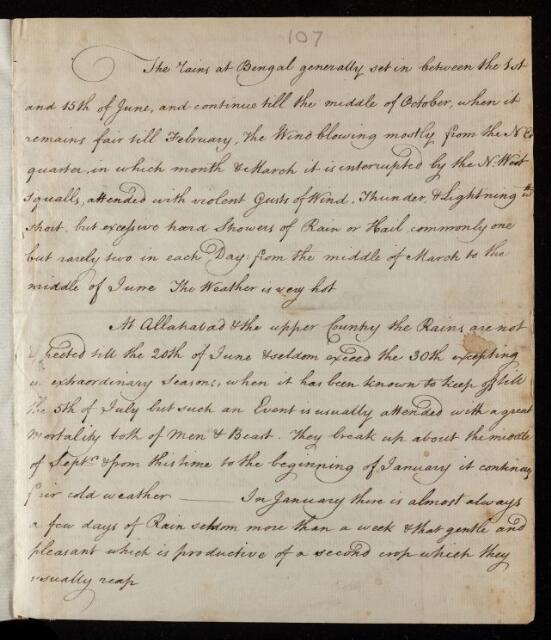 107
The rains at Bengal generally set in between the 1st
and 15th of June, and continue till the middle of October, when it
remains fair till February, the Wind blowing mostly from the N. E.
quarter, in which month & March it is interrupted by the N. West
squalls, attended with violent Gusts of Wind, Thunder, & Lightning
short, but excessive hard Showers of Rain or Hail commonly one
but rarely two in each Day. from the middle of March to the
middle of June The Weather is very hot
At Allahabad & the upper Country the Rains are not
expected till the 20th of June & seldom exceed the 30th excepting
in extraordinary Seasons, when it has been known to keep off till
the 5th of July but such an Event is usually attended with a great
mortality both of Men & Beast. They break up about the middle
of Septr. & from this time to the beginning of January it continues
fair cold weather ——— In January there is almost always
a few days of Rain seldom more than a week & that gentle and
pleasant which is productive of a second crop which they
usually reap